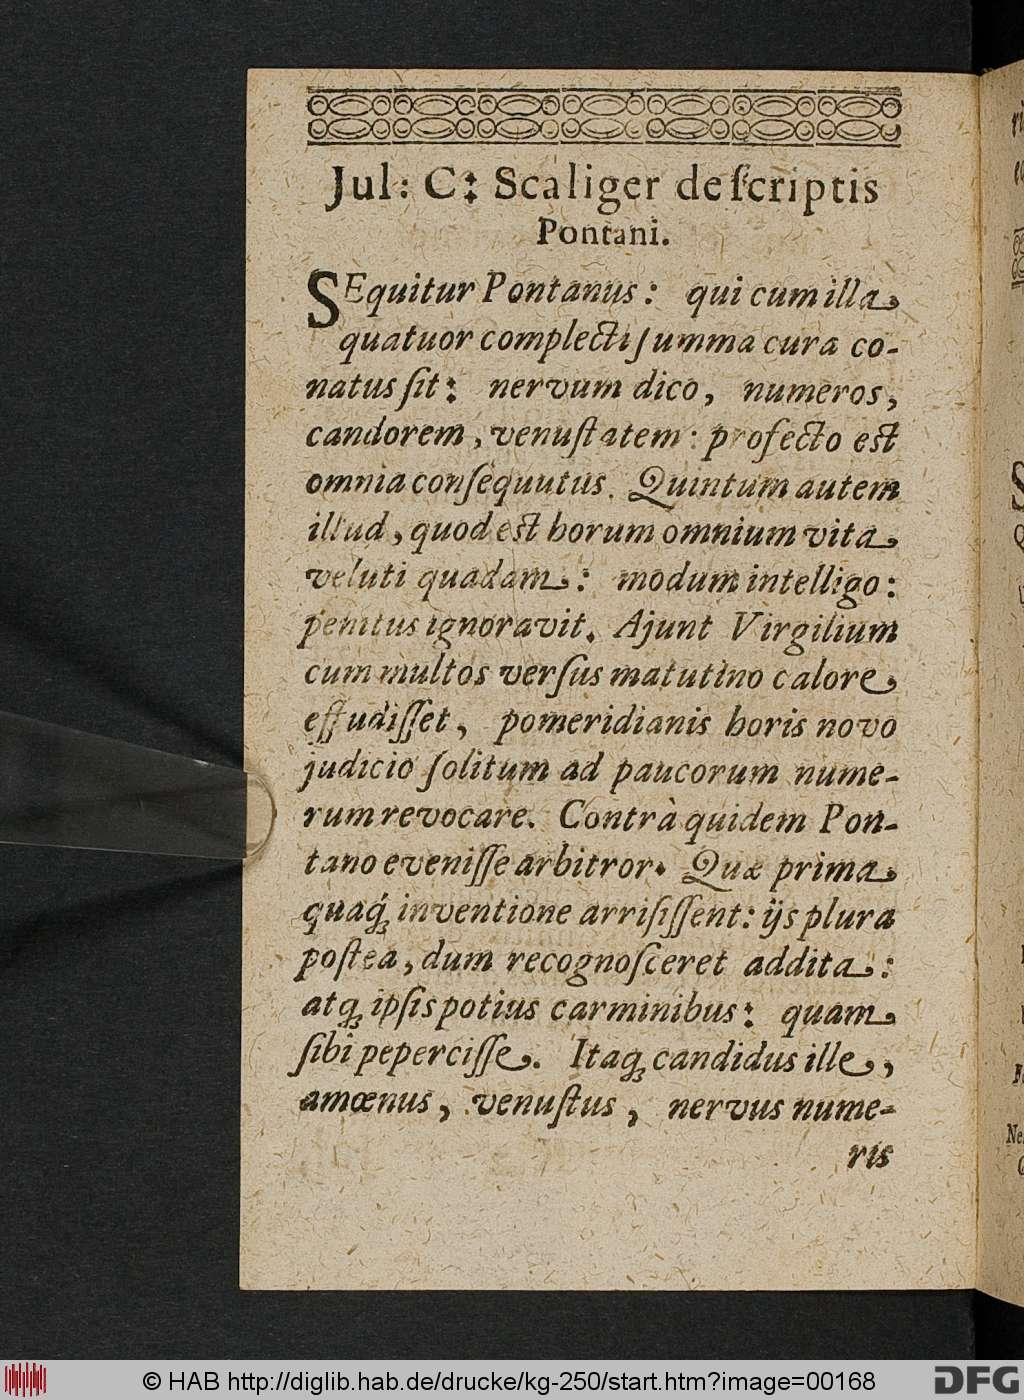 Jul: C: Scaliger de ſcriptis
Pontani.
SEquitur Pontanus: qui cum illa
quatuor complecti ſumma cura co-
natus ſit: nervum dico, numeros,
candorem, venuſtatem: profecto eſt
omnia conſequutus. Quintum autem
illud, quod eſt horum omnium vita
veluti quadam: modum intelligo:
penitus ignoravit. Ajunt Virgilium
cum multos verſus matutino calore
effudiſſet, pomeridianis horis novo
judicio ſolitum ad paucorum nume-
rum revocare. Contrà quidem Pon-
tano eveniſſe arbitror. Quæ prima
quaq́; inventione arriſiſſent: ijs plura
poſtea, dum recognoſceret addita:
atq; ipſis potius carminibus: quam
ſibi peperciſſe. Itaq; candidus ille,
amœnus, venuſtus, nervus nume-
ris
© HAB http://diglib.hab.de/drucke/kg-250/start.htm?image=00168
DFG